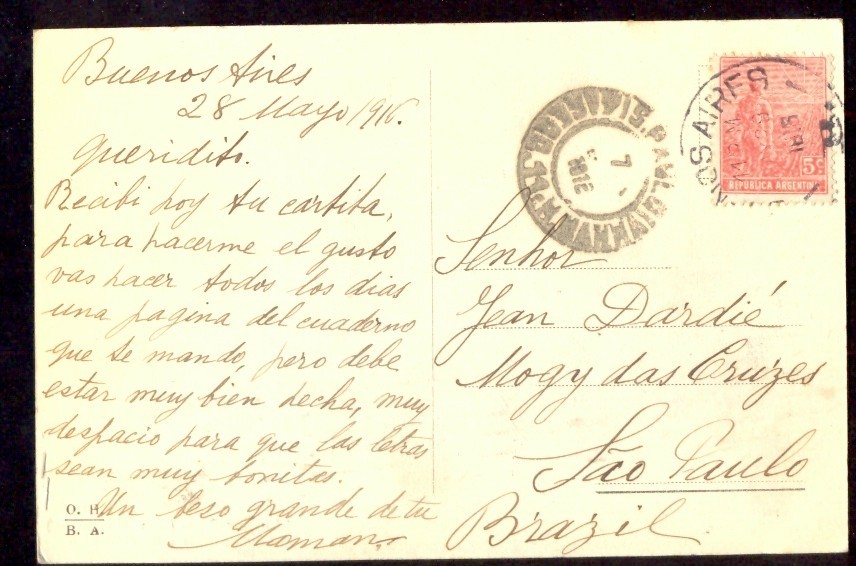 Buenos Aires
28 Mayo 1916.
Queridito.
Recibi hoy tu cartita,
para hacerme el gusto
vas hacer todos los dias
una pagina del cuaderno
que te mando, pero debe
estar muy bien hecha, muy
despacio para que las letras
sean muy bonitas.
Un beso grande de tu
Maman
O. H.
B. A.
S. PAULO
7
NOS AIRES
5c
REPUBLICA ARGENTINA
Senhor
Jean Dardié
Mogy das Cruzes
São Paulo
Brazil